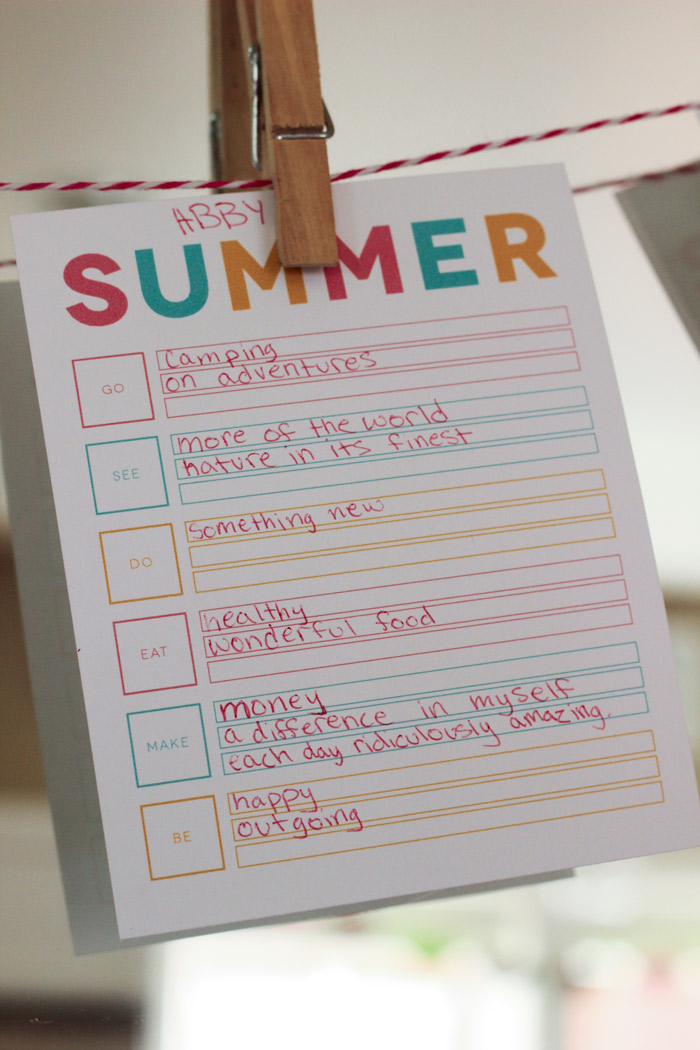 ABBY
SUMMER
GO
camping
on adventures
SEE
more of the world
nature in its finest
DO
something new
EAT
healthy
wonderful food
MAKE
money
a difference in myself
each day ridiculously amazing.
BE
happy
outgoing